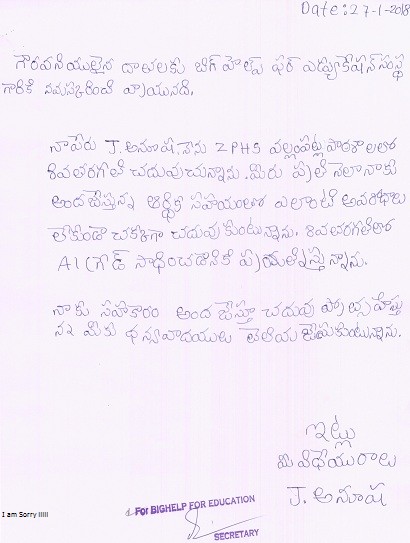 Date: 27-1-2018
గౌరవనీయులైన దాతలకు బిగ్ హెల్ప్ ఫర్ ఎడ్యుకేషన్ సంస్థ
గారికి నమస్కరించి వ్రాయునది.
నా పేరు J. అనూష నేను ZPHS వల్లంపట్ల పాఠశాలలో
10వ తరగతి చదువుచున్నాను. మీరు ప్రతి నెలా నాకు
అందజేస్తున్న ఆర్థిక సహాయంతో ఎలాంటి అవరోధాలు
లేకుండా చక్కగా చదువుకుంటున్నాను. 10వ తరగతిలో
A1 గ్రేడ్ సాధించడానికి ప్రయత్నిస్తున్నాను.
నాకు సహకారం అందజేస్తూ చదువు ప్రోత్సహిస్తు
న్న మీకు ధన్యవాదములు తెలియజేసుకుంటున్నాను.
ఇట్లు
మీ విధేయురాలు
J. అనూష
For BIGHELP FOR EDUCATION
SECRETARY
I am Sorry !!!!!